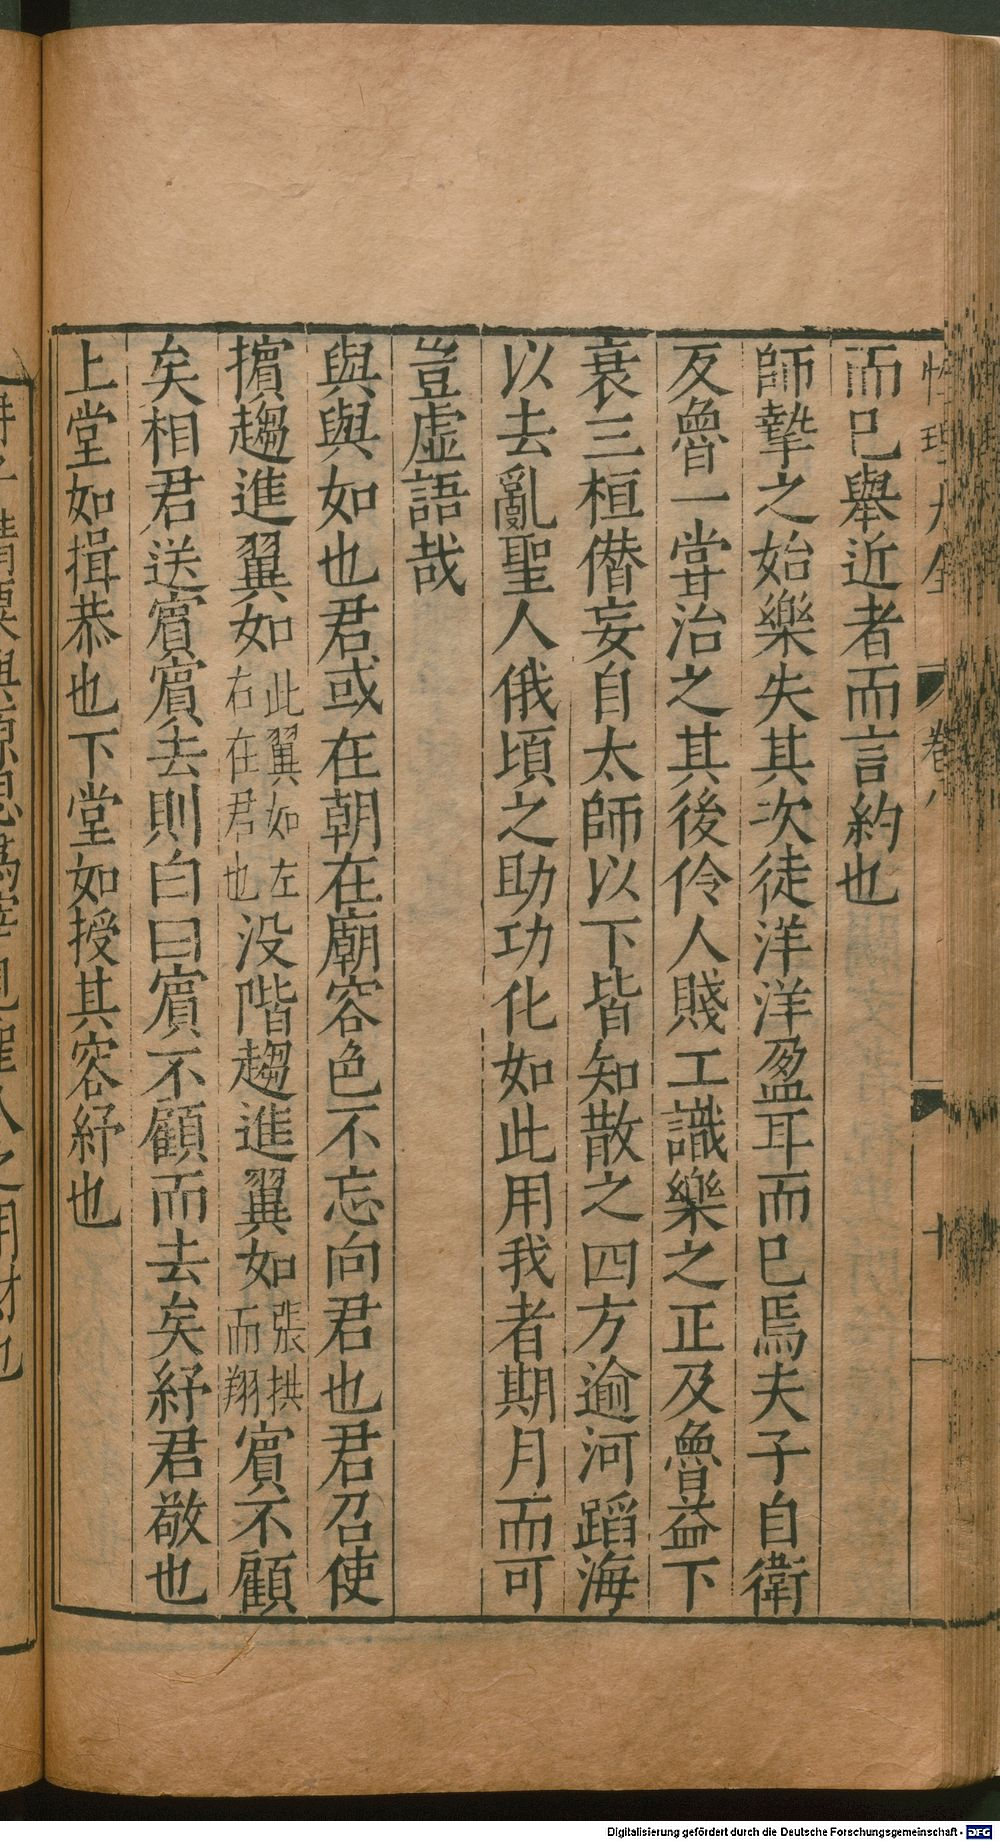 卷八
十
而已舉近者而言約也
師摯之始樂失其次徒洋洋盈耳而已焉夫子自衛
反魯一嘗治之其後伶人賤工識樂之正及魯益下
衰三桓僭妄自太師以下皆知散之四方逾河蹈海
以去亂聖人俄頃之助功化如此用我者期月而可
豈虛語哉
與與如也君或在朝在廟容色不忘向君也君召使
擯趨進翼如此翼如左右在君也没階趨進翼如張拱而翔賓不顧
矣相君送賓賓去則白曰賓不顧而去矣紓君敬也
上堂如揖恭也下堂如授其容紓也
Digitalisierung gefördert durch die Deutsche Forschungsgemeinschaft - DFG